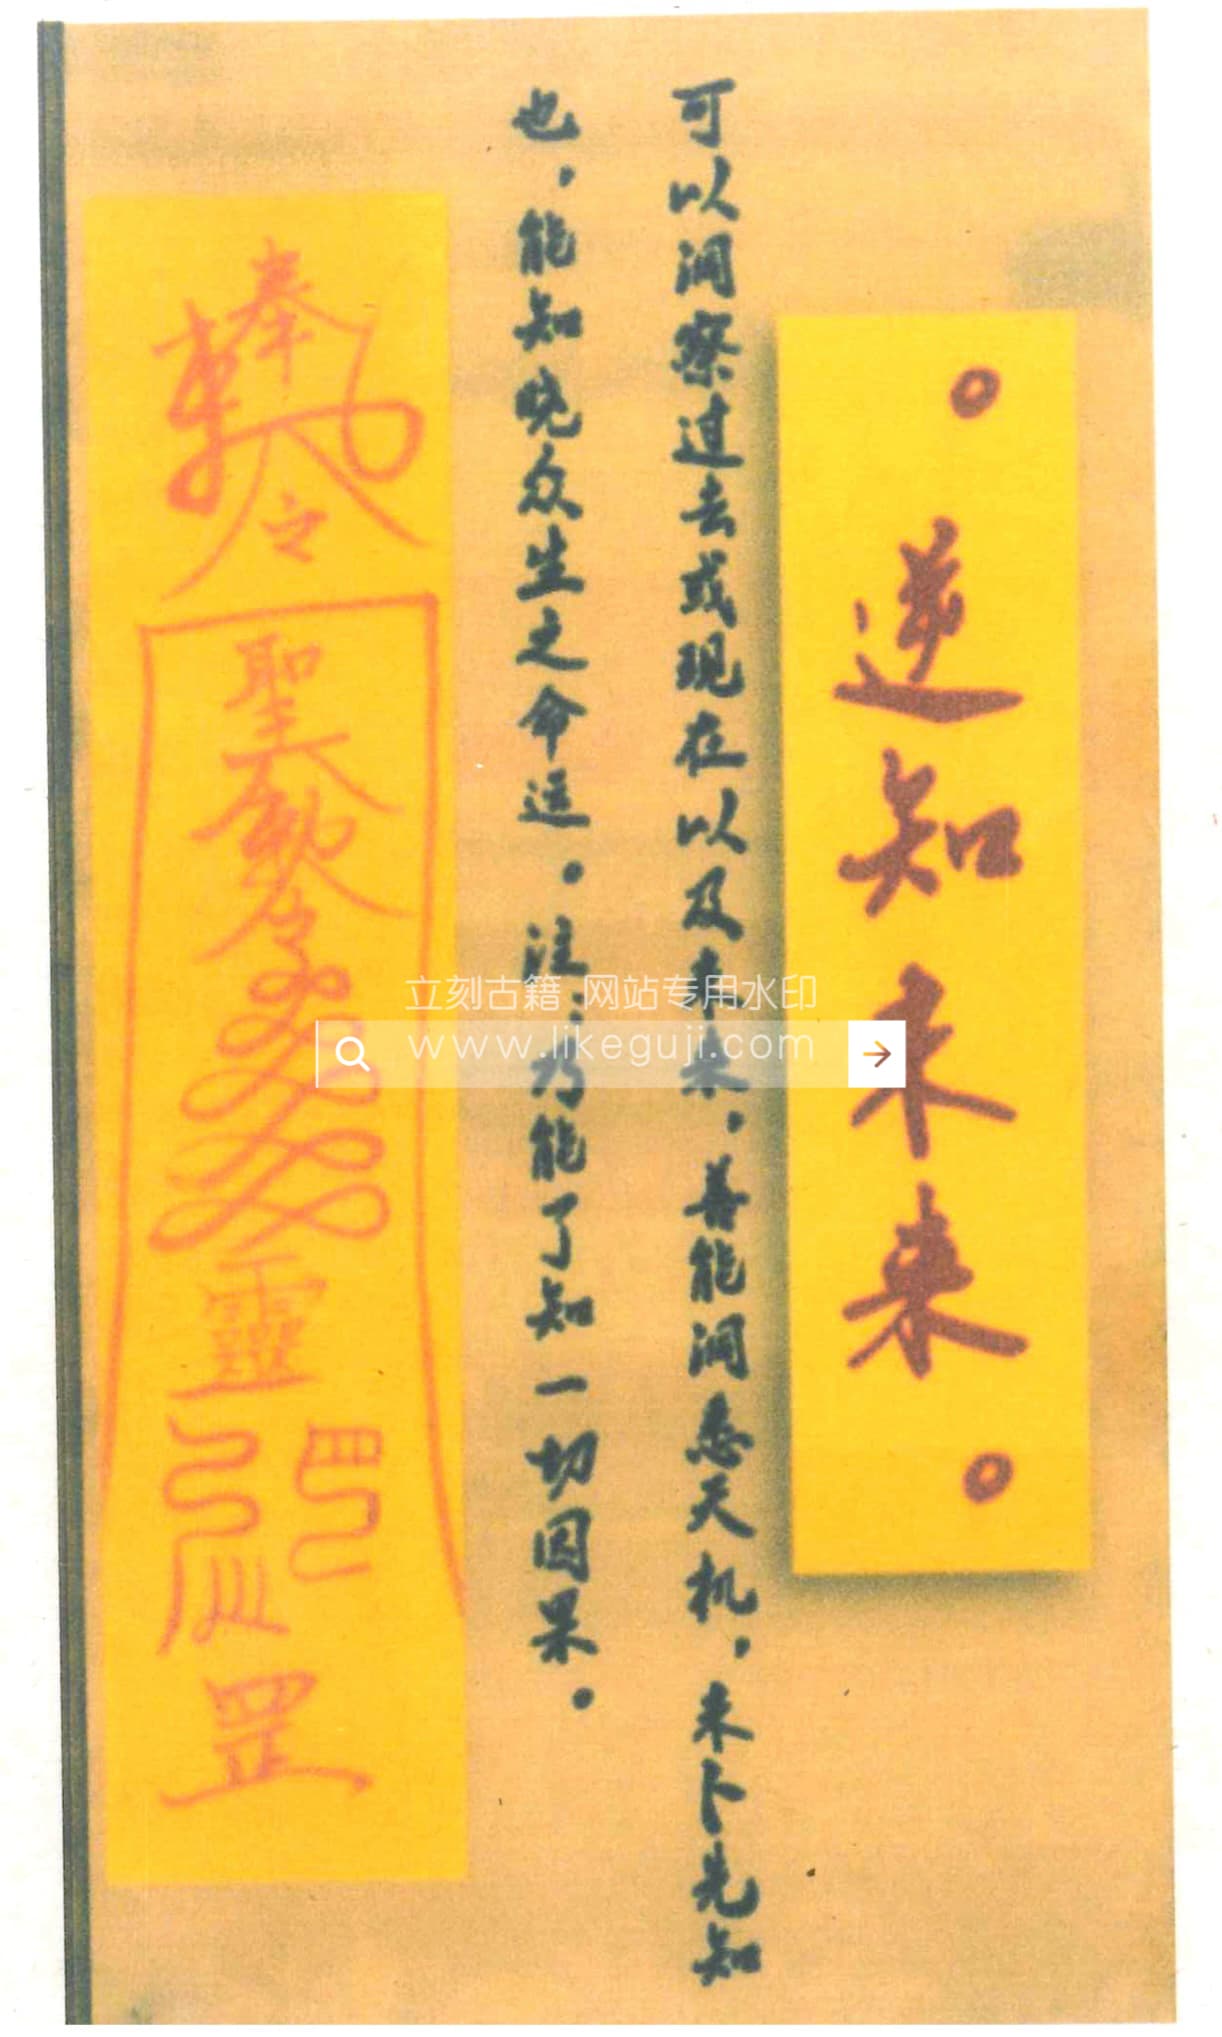 。逆知未来。
可以洞察过去或现在以及未来，善能洞悉天机，未卜先知
也，能知晓众生之命运。注：乃能了知一切因果。
奉
敕
令
聖
敕
令
靈
罡
立刻古籍 网站专用水印
www.likeguji.com